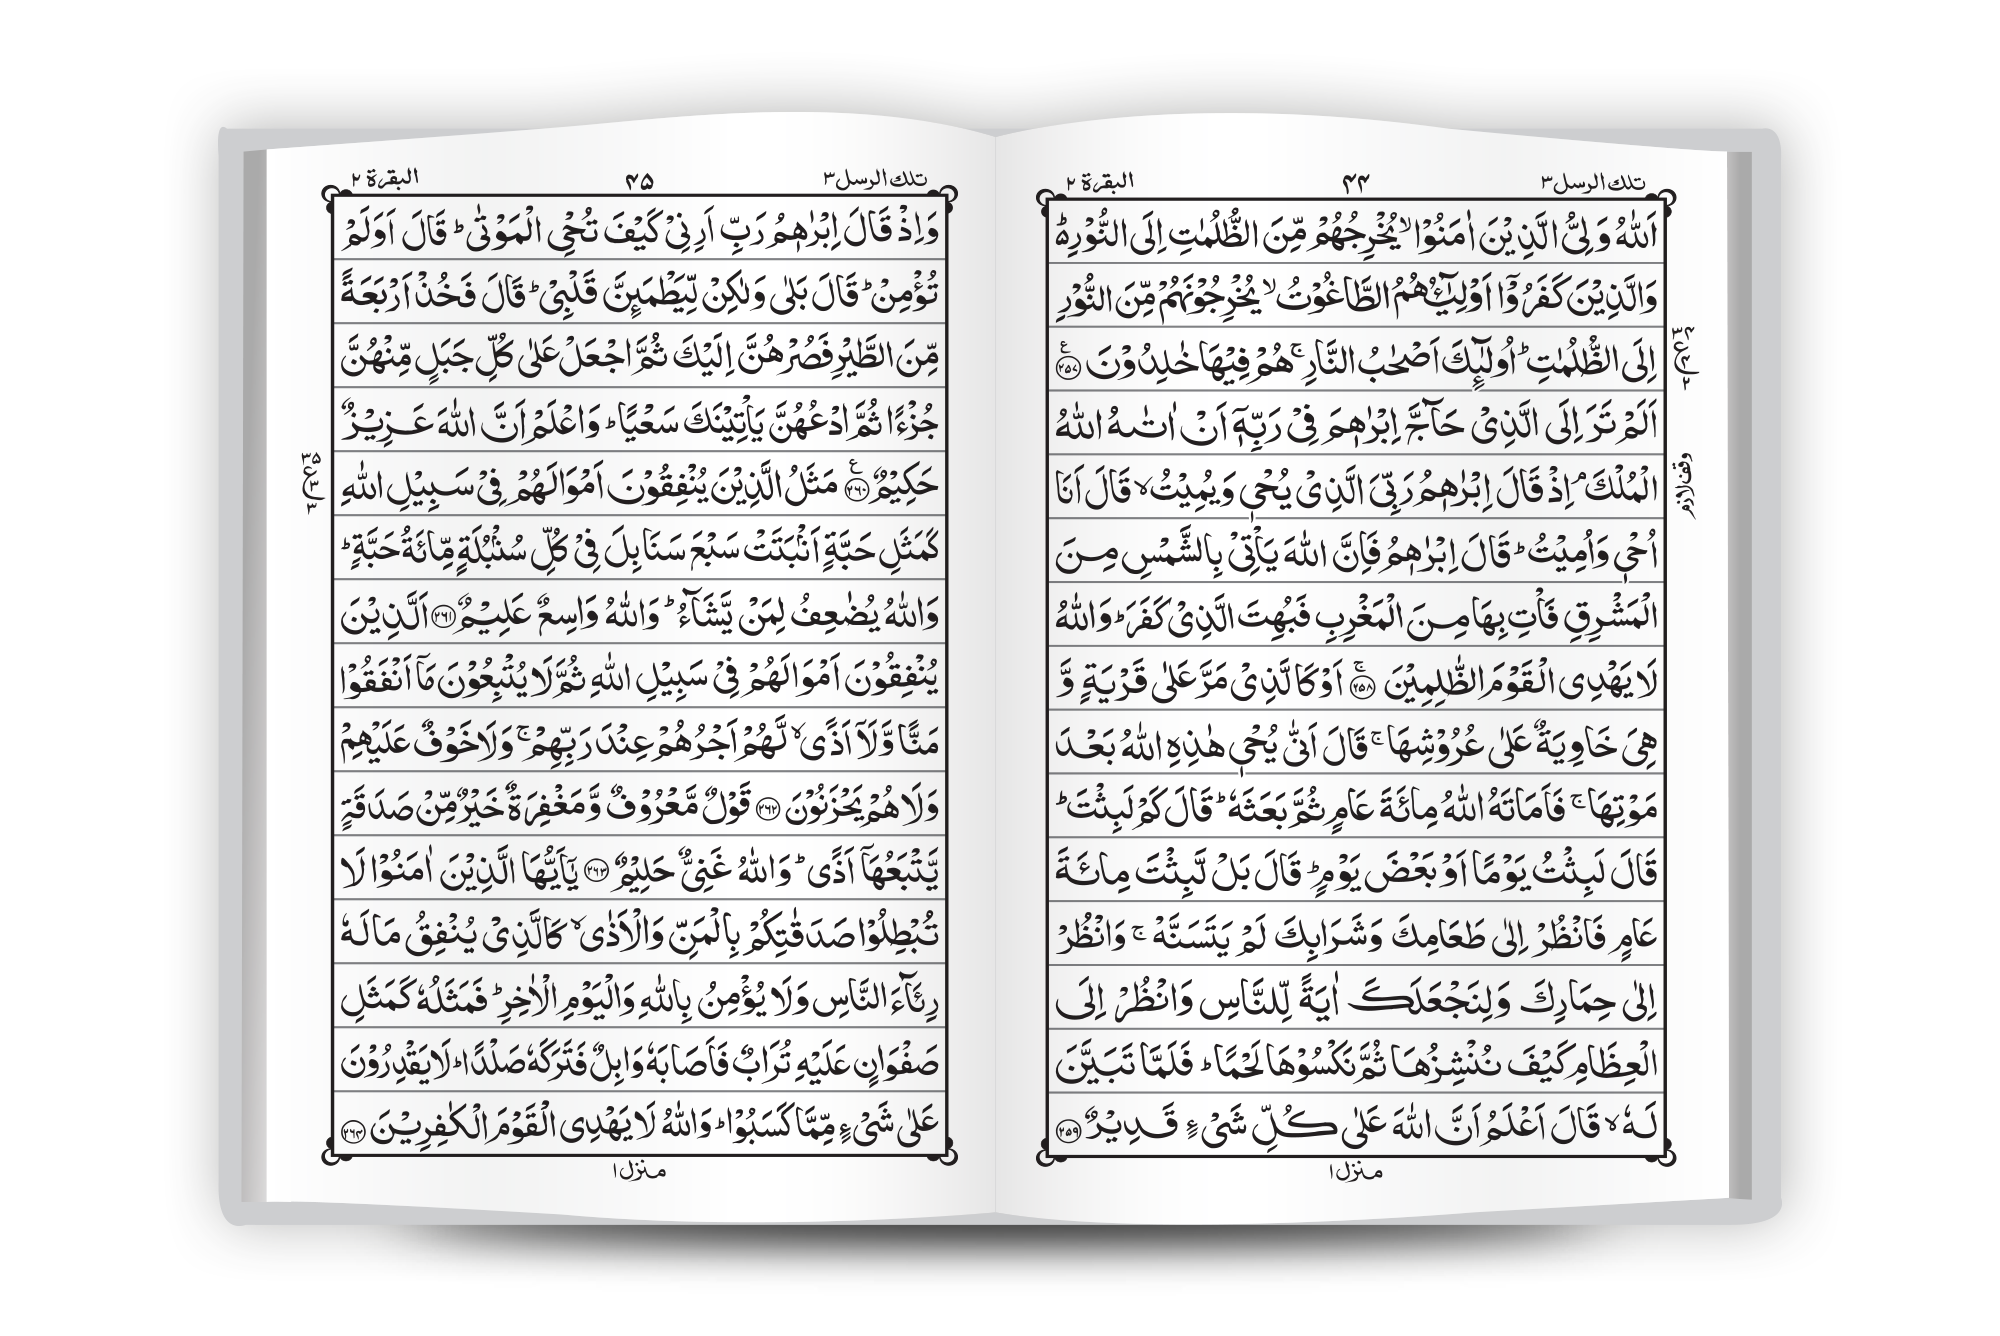 تلك الرسل ٣
۴۴
البقرة ٢
اَللّٰهُ وَلِىُّ الَّذِيْنَ اٰمَنُوْا ۙ يُخْرِجُهُمْ مِّنَ الظُّلُمٰتِ اِلَى النُّوْرِ ۬ؕ
وَالَّذِيْنَ كَفَرُوْۤا اَوْلِيٰٓـُٔهُمُ الطَّاغُوْتُ ۙ يُخْرِجُوْنَهُمْ مِّنَ النُّوْرِ
اِلَى الظُّلُمٰتِ ؕ اُولٰٓئِكَ اَصْحٰبُ النَّارِ ۚ هُمْ فِيْهَا خٰلِدُوْنَ ع ٢٥٧
٣۴
ع
٢
٢
اَلَمْ تَرَ اِلَى الَّذِىْ حَآجَّ اِبْرٰهٖمَ فِىْ رَبِّهٖۤ اَنْ اٰتٰىهُ اللّٰهُ
الْمُلْكَ ۘ اِذْ قَالَ اِبْرٰهٖمُ رَبِّىَ الَّذِىْ يُحْىٖ وَيُمِيْتُ ۙ قَالَ اَنَا
وقف لازم
اُحْىٖ وَاُمِيْتُ ؕ قَالَ اِبْرٰهٖمُ فَاِنَّ اللّٰهَ يَاْتِىْ بِالشَّمْسِ مِنَ
الْمَشْرِقِ فَاْتِ بِهَا مِنَ الْمَغْرِبِ فَبُهِتَ الَّذِىْ كَفَرَ ؕ وَاللّٰهُ
لَا يَهْدِى الْقَوْمَ الظّٰلِمِيْنَ ۚ ٢٥٨ اَوْ كَالَّذِىْ مَرَّ عَلٰى قَرْيَةٍ وَّ
هِىَ خَاوِيَةٌ عَلٰى عُرُوْشِهَا ۚ قَالَ اَنّٰى يُحْىٖ هٰذِهِ اللّٰهُ بَعْدَ
مَوْتِهَا ۚ فَاَمَاتَهُ اللّٰهُ مِائَةَ عَامٍ ثُمَّ بَعَثَهٗ ؕ قَالَ كَمْ لَبِثْتَ ؕ
قَالَ لَبِثْتُ يَوْمًا اَوْ بَعْضَ يَوْمٍ ؕ قَالَ بَلْ لَّبِثْتَ مِائَةَ
عَامٍ فَانْظُرْ اِلٰى طَعَامِكَ وَشَرَابِكَ لَمْ يَتَسَنَّهْ ۚ وَانْظُرْ
اِلٰى حِمَارِكَ وَلِنَجْعَلَكَ اٰيَةً لِّلنَّاسِ وَانْظُرْ اِلَى
الْعِظَامِ كَيْفَ نُنْشِزُهَا ثُمَّ نَكْسُوْهَا لَحْمًا ؕ فَلَمَّا تَبَيَّنَ
لَهٗ ۙ قَالَ اَعْلَمُ اَنَّ اللّٰهَ عَلٰى كُلِّ شَىْءٍ قَدِيْرٌ ٢٥٩
منزل ١
تلك الرسل ٣
۴۵
البقرة ٢
وَاِذْ قَالَ اِبْرٰهٖمُ رَبِّ اَرِنِىْ كَيْفَ تُحْىِ الْمَوْتٰى ؕ قَالَ اَوَلَمْ
تُؤْمِنْ ؕ قَالَ بَلٰى وَلٰكِنْ لِّيَطْمَئِنَّ قَلْبِىْ ؕ قَالَ فَخُذْ اَرْبَعَةً
مِّنَ الطَّيْرِ فَصُرْهُنَّ اِلَيْكَ ثُمَّ اجْعَلْ عَلٰى كُلِّ جَبَلٍ مِّنْهُنَّ
جُزْءًا ثُمَّ ادْعُهُنَّ يَاْتِيْنَكَ سَعْيًا ؕ وَاعْلَمْ اَنَّ اللّٰهَ عَزِيْزٌ
حَكِيْمٌ ع ٢٦٠ مَثَلُ الَّذِيْنَ يُنْفِقُوْنَ اَمْوَالَهُمْ فِىْ سَبِيْلِ اللّٰهِ
٣۵
ع
٣
٣
كَمَثَلِ حَبَّةٍ اَنْۢبَتَتْ سَبْعَ سَنَابِلَ فِىْ كُلِّ سُنْۢبُلَةٍ مِّائَةُ حَبَّةٍ ؕ
وَاللّٰهُ يُضٰعِفُ لِمَنْ يَّشَآءُ ؕ وَاللّٰهُ وَاسِعٌ عَلِيْمٌ ٢٦١ اَلَّذِيْنَ
يُنْفِقُوْنَ اَمْوَالَهُمْ فِىْ سَبِيْلِ اللّٰهِ ثُمَّ لَا يُتْبِعُوْنَ مَاۤ اَنْفَقُوْا
مَنًّا وَّلَاۤ اَذًى ۙ لَّهُمْ اَجْرُهُمْ عِنْدَ رَبِّهِمْ ۚ وَلَا خَوْفٌ عَلَيْهِمْ
وَلَا هُمْ يَحْزَنُوْنَ ٢٦٢ قَوْلٌ مَّعْرُوْفٌ وَّمَغْفِرَةٌ خَيْرٌ مِّنْ صَدَقَةٍ
يَّتْبَعُهَاۤ اَذًى ؕ وَاللّٰهُ غَنِىٌّ حَلِيْمٌ ٢٦٣ يٰۤاَيُّهَا الَّذِيْنَ اٰمَنُوْا لَا
تُبْطِلُوْا صَدَقٰتِكُمْ بِالْمَنِّ وَالْاَذٰى ۙ كَالَّذِىْ يُنْفِقُ مَالَهٗ
رِئَآءَ النَّاسِ وَلَا يُؤْمِنُ بِاللّٰهِ وَالْيَوْمِ الْاٰخِرِ ؕ فَمَثَلُهٗ كَمَثَلِ
صَفْوَانٍ عَلَيْهِ تُرَابٌ فَاَصَابَهٗ وَابِلٌ فَتَرَكَهٗ صَلْدًا ؕ لَا يَقْدِرُوْنَ
عَلٰى شَىْءٍ مِّمَّا كَسَبُوْا ؕ وَاللّٰهُ لَا يَهْدِى الْقَوْمَ الْكٰفِرِيْنَ ٢٦۴
منزل ١